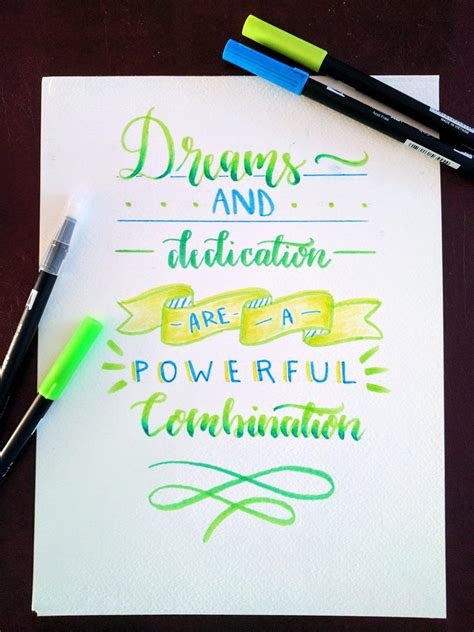 Dreams
AND
dedication
-ARE-A-
POWERFUL
Combination